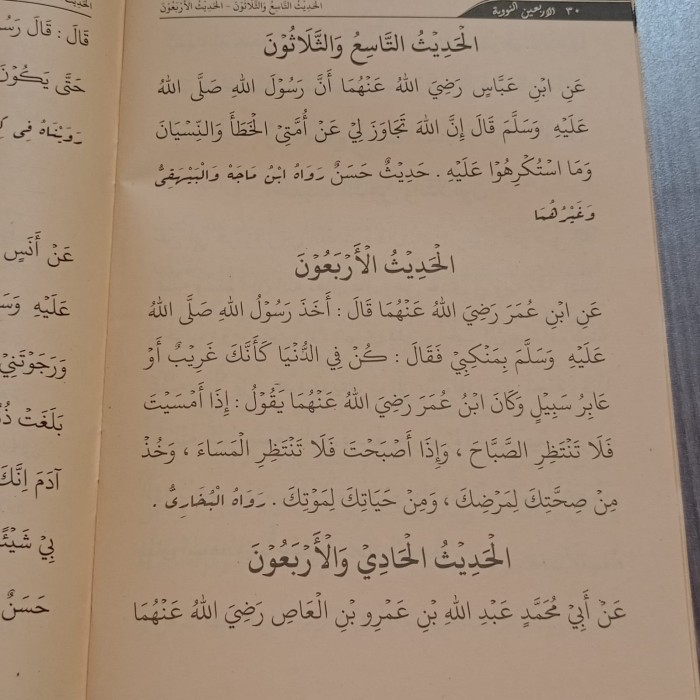 الحديث التاسع والثلاثون - الحديث الأربعون
٣٠ الاربعين النووية
الْحَدِيْثُ التَّاسِعُ وَالثَّلَاثُوْنَ
عَنِ ابْنِ عَبَّاسٍ رَضِيَ اللهُ عَنْهُمَا أَنَّ رَسُوْلَ اللهِ صَلَّى اللهُ
عَلَيْهِ وَسَلَّمَ قَالَ إِنَّ اللهَ تَجَاوَزَ لِيْ عَنْ أُمَّتِيْ الْخَطَأَ وَالنِّسْيَانَ
وَمَا اسْتُكْرِهُوْا عَلَيْهِ . حَدِيْثٌ حَسَنٌ رَوَاهُ ابْنُ مَاجَهْ وَالْبَيْهَقِىُّ
وَغَيْرُهُمَا
الْحَدِيْثُ الْأَرْبَعُوْنَ
عَنِ ابْنِ عُمَرَ رَضِيَ اللهُ عَنْهُمَا قَالَ : أَخَذَ رَسُوْلُ اللهِ صَلَّى اللهُ
عَلَيْهِ وَسَلَّمَ بِمَنْكِبِيْ فَقَالَ : كُنْ فِي الدُّنْيَا كَأَنَّكَ غَرِيْبٌ أَوْ
عَابِرُ سَبِيْلٍ وَكَانَ ابْنُ عُمَرَ رَضِيَ اللهُ عَنْهُمَا يَقُوْلُ : إِذَا أَمْسَيْتَ
فَلَا تَنْتَظِرِ الصَّبَّاحَ ، وَإِذَا أَصْبَحْتَ فَلَا تَنْتَظِرِ الْمَسَاءَ ، وَخُذْ
مِنْ صِحَّتِكَ لِمَرْضِكَ ، وَمِنْ حَيَاتِكَ لِمَوْتِكَ . رَوَاهُ الْبُخَارِىُّ .
الْحَدِيْثُ الْحَادِيْ وَالْأَرْبَعُوْنَ
عَنْ أَبِيْ مُحَمَّدٍ عَبْدِ اللهِ بْنِ عَمْرِو بْنِ الْعَاصِ رَضِيَ اللهُ عَنْهُمَا
قَالَ : قَالَ
حَتَّى يَكُوْنَ
رَوَيْنَاهُ فِى
عَنْ أَنَسٍ
عَلَيْهِ
وَرَجَوْتَنِيْ
بَلَغَتْ
آدَمَ إِنَّكَ
بِيْ
حَسَنٌ